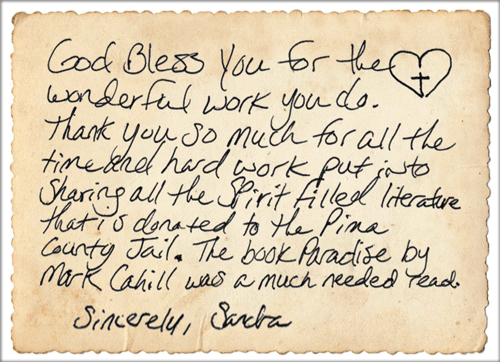 God Bless You for the
wonderful work you do.
Thank you so much for all the
time and hard work put into
Sharing all the Spirit filled literature
that is donated to the Pima
County Jail. The book Paradise by
Mark Cahill was a much needed read.
Sincerely, Sandra